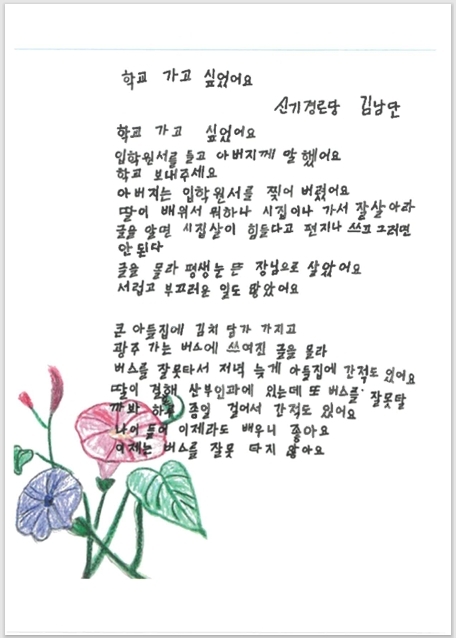 학교 가고 싶었어요
신기경로당 김남단
학교 가고 싶었어요
입학원서를 들고 아버지께 말 했어요
학교 보내주세요
아버지는 입학원서를 찢어 버렸어요
딸이 배워서 뭐하나 시집이나 가서 잘살아라
글을 알면 시집살이 힘들다고 편지나 쓰고 그러면
안된다
글을 몰라 평생눈뜬 장님으로 살았어요
서럽고 부끄러운 일도 많았어요
큰 아들집에 김치 담가 가지고
광주 가는 버스에 쓰여진 글을 몰라
버스를 잘못타서 저녁 늦게 아들집에 간적도 있어요
딸이 결혼해 산부인과에 있는데 또 버스를 잘못탈
까봐 하루 종일 걸어서 간적도 있어요
나이 들어 이제라도 배우니 좋아요
이제는 버스를 잘못 타지 않아요